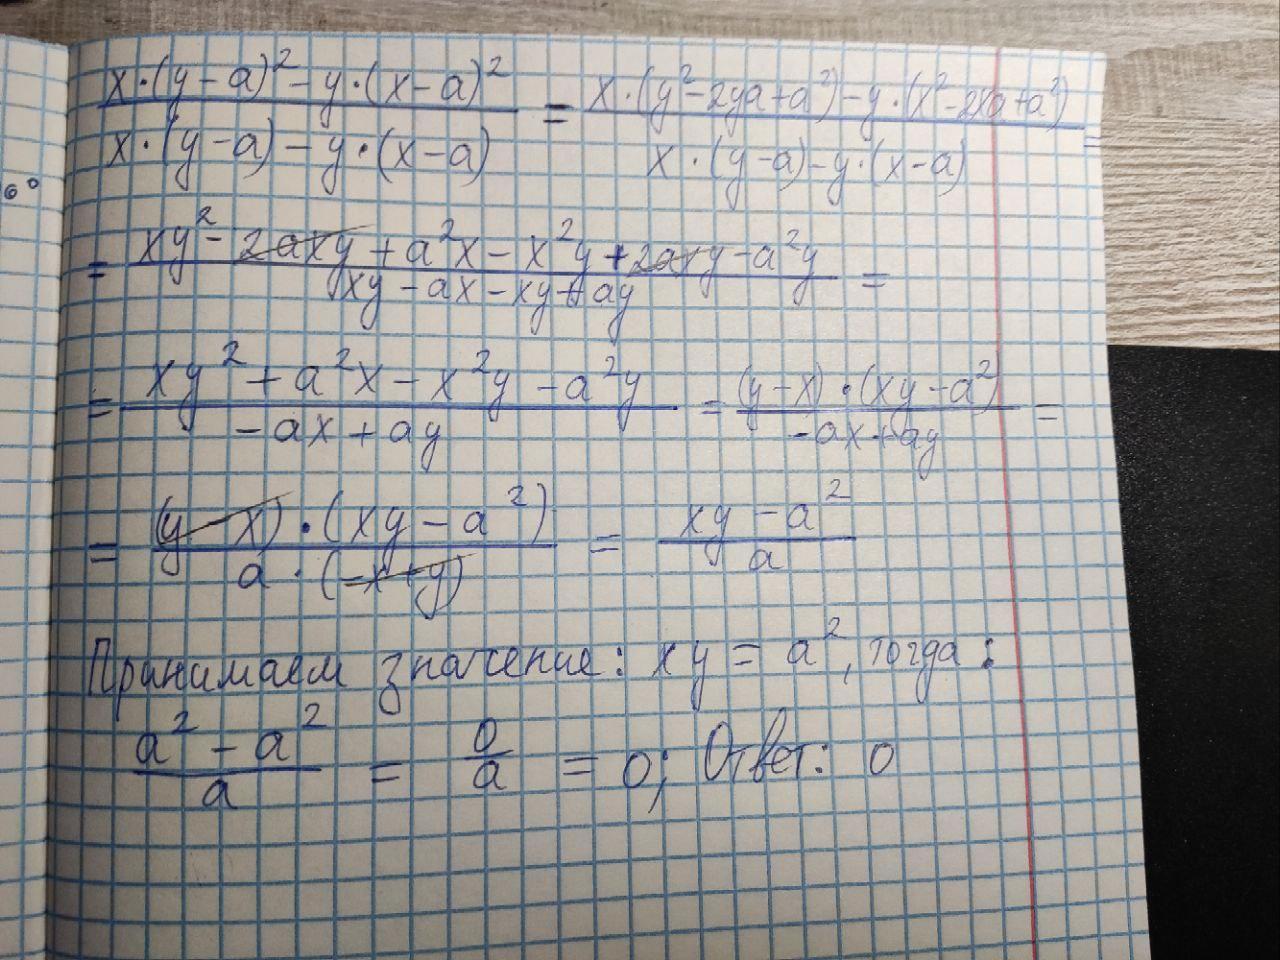 x·(y-a)²-y·(x-a)² / x·(y-a)-y·(x-a) = x·(y²-2ya+a²)-y·(x²-2xa+a²) / x·(y-a)-y·(x-a) =
6°
= xy²-2axy+a²x-x²y+2axy-a²y / xy-ax-xy+ay =
= xy²+a²x-x²y-a²y / -ax+ay = (y-x)·(xy-a²) / -ax+ay =
= (y-x)·(xy-a²) / a·(-x+y) = xy-a² / a
Принимаем значение: xy = a², тогда:
a²-a² / a = 0 / a = 0; Ответ: 0